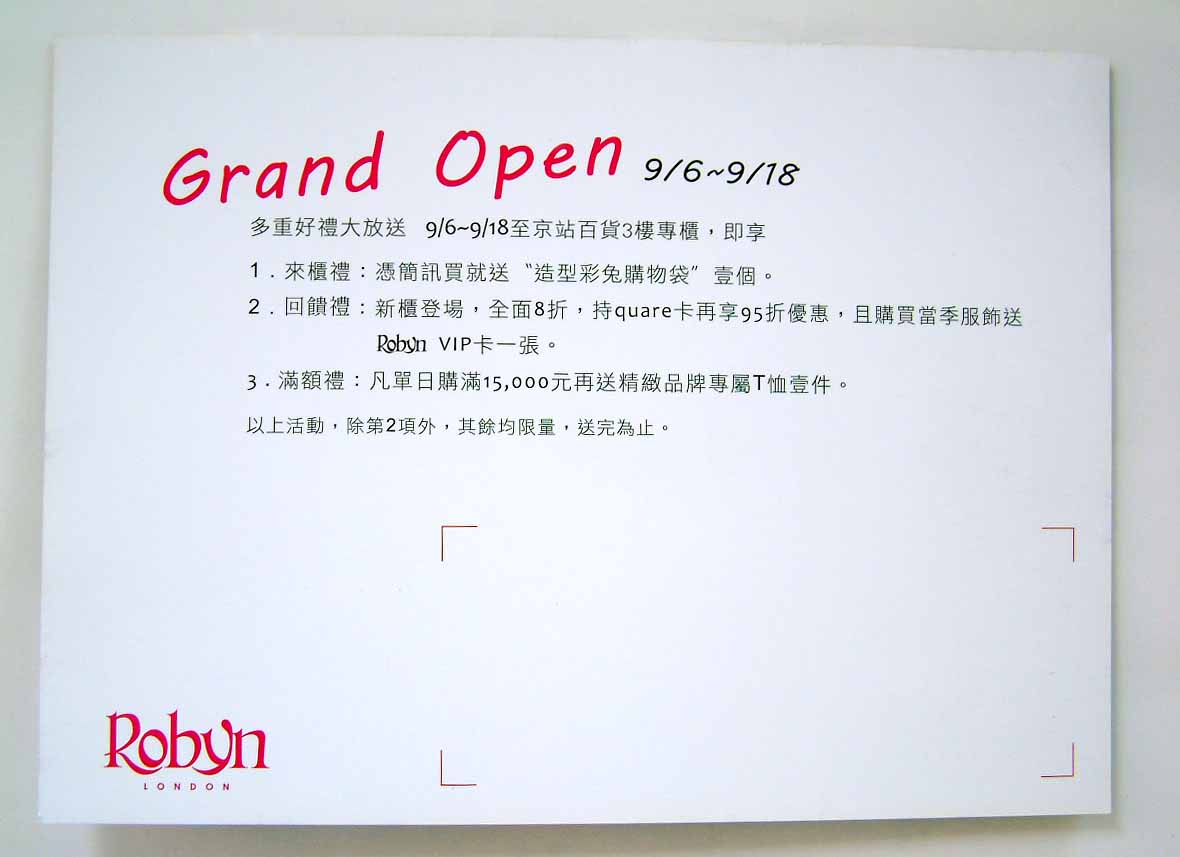 Grand Open 9/6~9/18
多重好禮大放送 9/6~9/18至京站百貨3樓專櫃，即享
1．來櫃禮：憑簡訊買就送〝造型彩兔購物袋〞壹個。
2．回饋禮：新櫃登場，全面8折，持quare卡再享95折優惠，且購買當季服飾送
Robyn VIP卡一張。
3．滿額禮：凡單日購滿15,000元再送精緻品牌專屬T恤壹件。
以上活動，除第2項外，其餘均限量，送完為止。
Robyn
LONDON